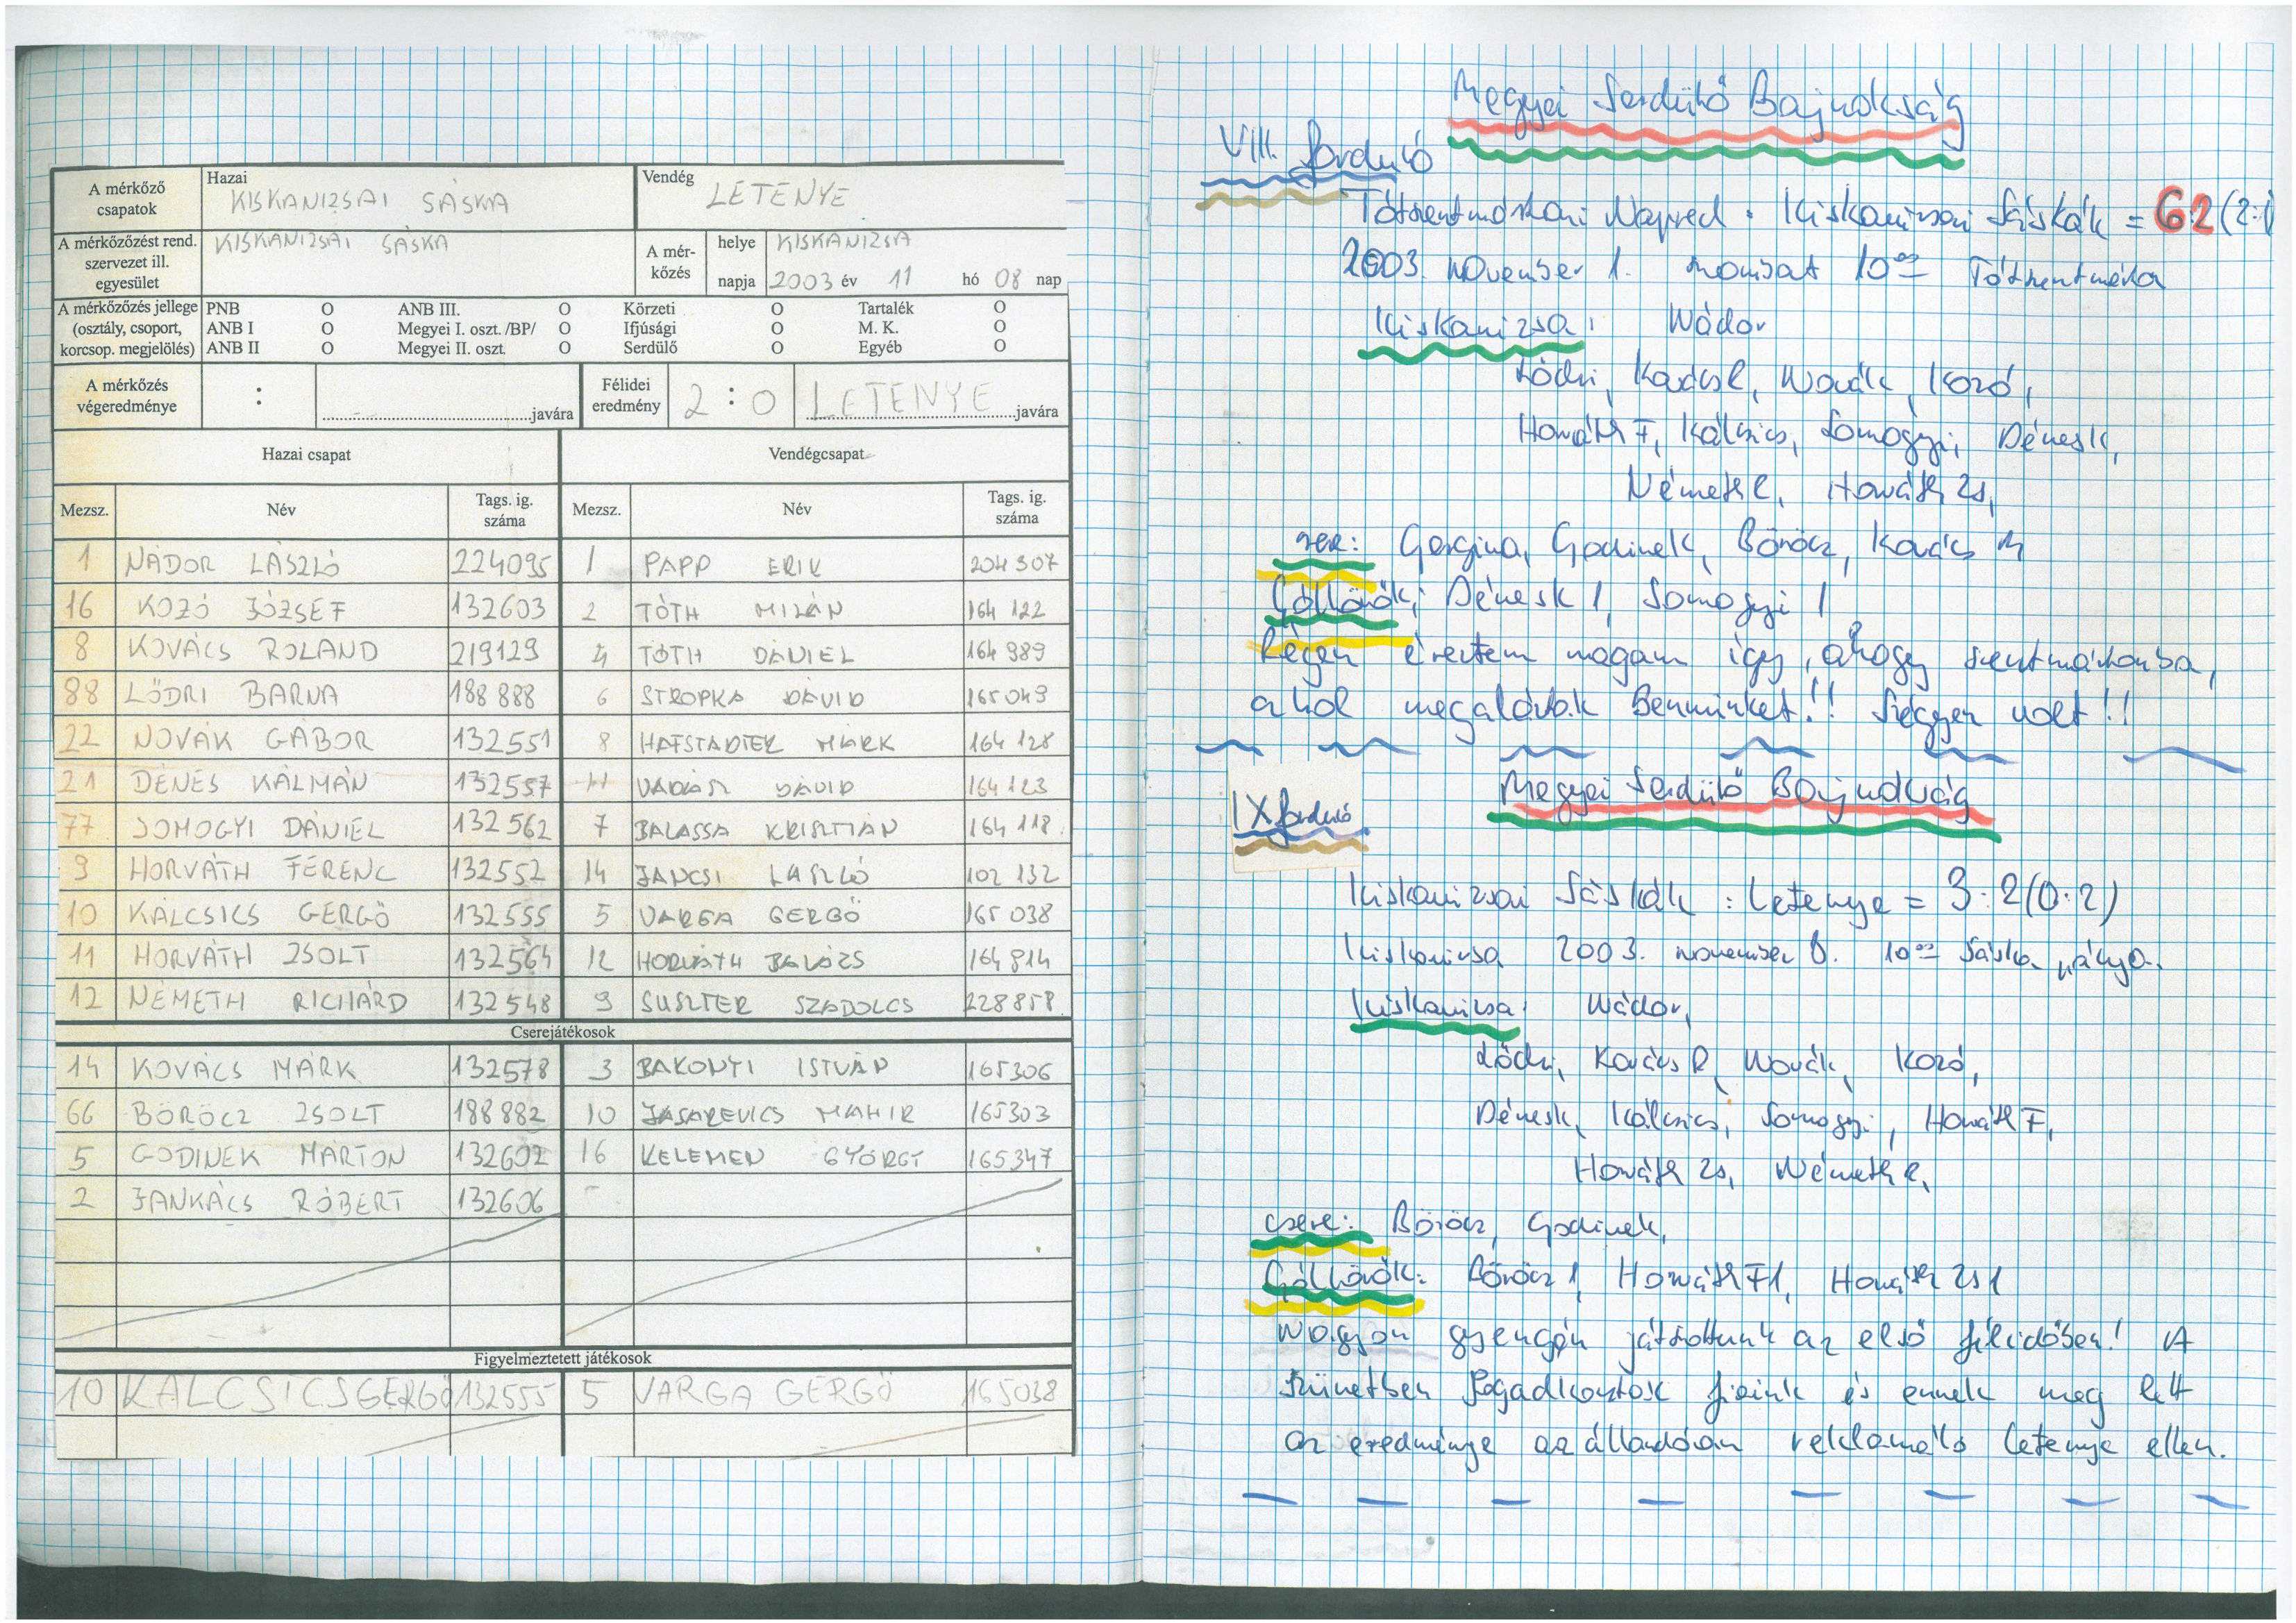 A mérkőző csapatok
Hazai KISKANIZSAI SÁSKA
Vendég LETENYE
A mérkőzőzést rend. szervezet ill. egyesület
KISKANIZSAI SÁSKA
A mér-kőzés
helye KISKANIZSA
napja 2003 év 11 hó 08 nap
A mérkőzőzés jellege (osztály, csoport, korcsop. megjelölés)
PNB O ANB III. O Körzeti O Tartalék O
ANB I O Megyei I. oszt. /BP/ O Ifjúsági O M. K. O
ANB II O Megyei II. oszt. O Serdülő O Egyéb O
A mérkőzés végeredménye : javára
Félidei eredmény 2 : 0 LETENYE javára
Hazai csapat Vendégcsapat
Mezsz. Név Tags. ig. száma Mezsz. Név Tags. ig. száma
1 NÁDOR LÁSZLÓ 224095 1 PAPP ERIK 204307
16 KOZÓ JÓZSEF 132603 2 TÓTH MILÁN 164 122
8 KOVÁCS ROLAND 219129 4 TÓTH DÁNIEL 164 989
88 LŐDRI BARNA 188 888 6 STROPKA DÁVID 165 049
22 NOVÁK GÁBOR 132551 8 HAFSTADTER MÁRK 164 128
21 DÉNES KÁLMÁN 132557 11 VADÁSZ DÁVID 164 123
77 SOMOGYI DÁNIEL 132562 7 BALASSA KRISZTIÁN 164 118
9 HORVÁTH FERENC 132552 14 JANCSI LÁSZLÓ 102 132
10 KÁLCSICS GERGŐ 132555 5 VARGA GERGŐ 165 038
11 HORVÁTH ZSOLT 132564 12 HORVÁTH BALÁZS 164 814
12 NÉMETH RICHÁRD 132548 9 SUSZTER SZABOLCS 228858
Cserejátékosok
14 KOVÁCS MÁRK 132578 3 BAKONYI ISTVÁN 165306
66 BÖRÖCZ ZSOLT 188 882 10 JASAREVICS MAHIR 165303
5 GODINEK MÁRTON 132602 16 KELEMEN GYÖRGY 165347
2 JANKÁCS RÓBERT 132606
Figyelmeztetett játékosok
10 KÁLCSICS GERGŐ 132555 5 VARGA GERGŐ 165038
Megyei Serdülő Bajnokság
VIII. forduló
Tótszentmártoni Napred : Kiskanizsai Sáskák = 6:2 (2:1)
2003. november 1. szombat 10⁰⁰ Tótszentmárton
Kiskanizsa: Nádor
Lődri, Kovács R, Novák, Kozó,
Horváth F, Kálcsics, Somogyi, Dénes K,
Németh R, Horváth Zs,
csere: Gergina, Godinek, Böröcz, Kovács M
Góllövők: Dénes K 1, Somogyi 1
Régen éreztem magam így, ahogy szentmártonba,
ahol megaláztak Bennünket!! Szégyen volt!!
Megyei Serdülő Bajnokság
IX forduló
Kiskanizsai Sáskák : Letenye = 3:2 (0:2)
Kiskanizsa 2003. november 8. 10⁰⁰ Sáska pálya.
Kiskanizsa: Nádor,
Lődri, Kovács R, Novák, Kozó,
Dénes K, Kálcsics, Somogyi, Horváth F,
Horváth Zs, Németh R,
csere: Böröcz, Godinek,
Góllövők: Böröcz 1, Horváth F 1, Horváth Zs 1
Nagyon gyengén játszottunk az első félidőben! A
szünetben fogadkoztak fiaink és ennek meg lett
az eredménye az állandóan reklamáló Letenye ellen.